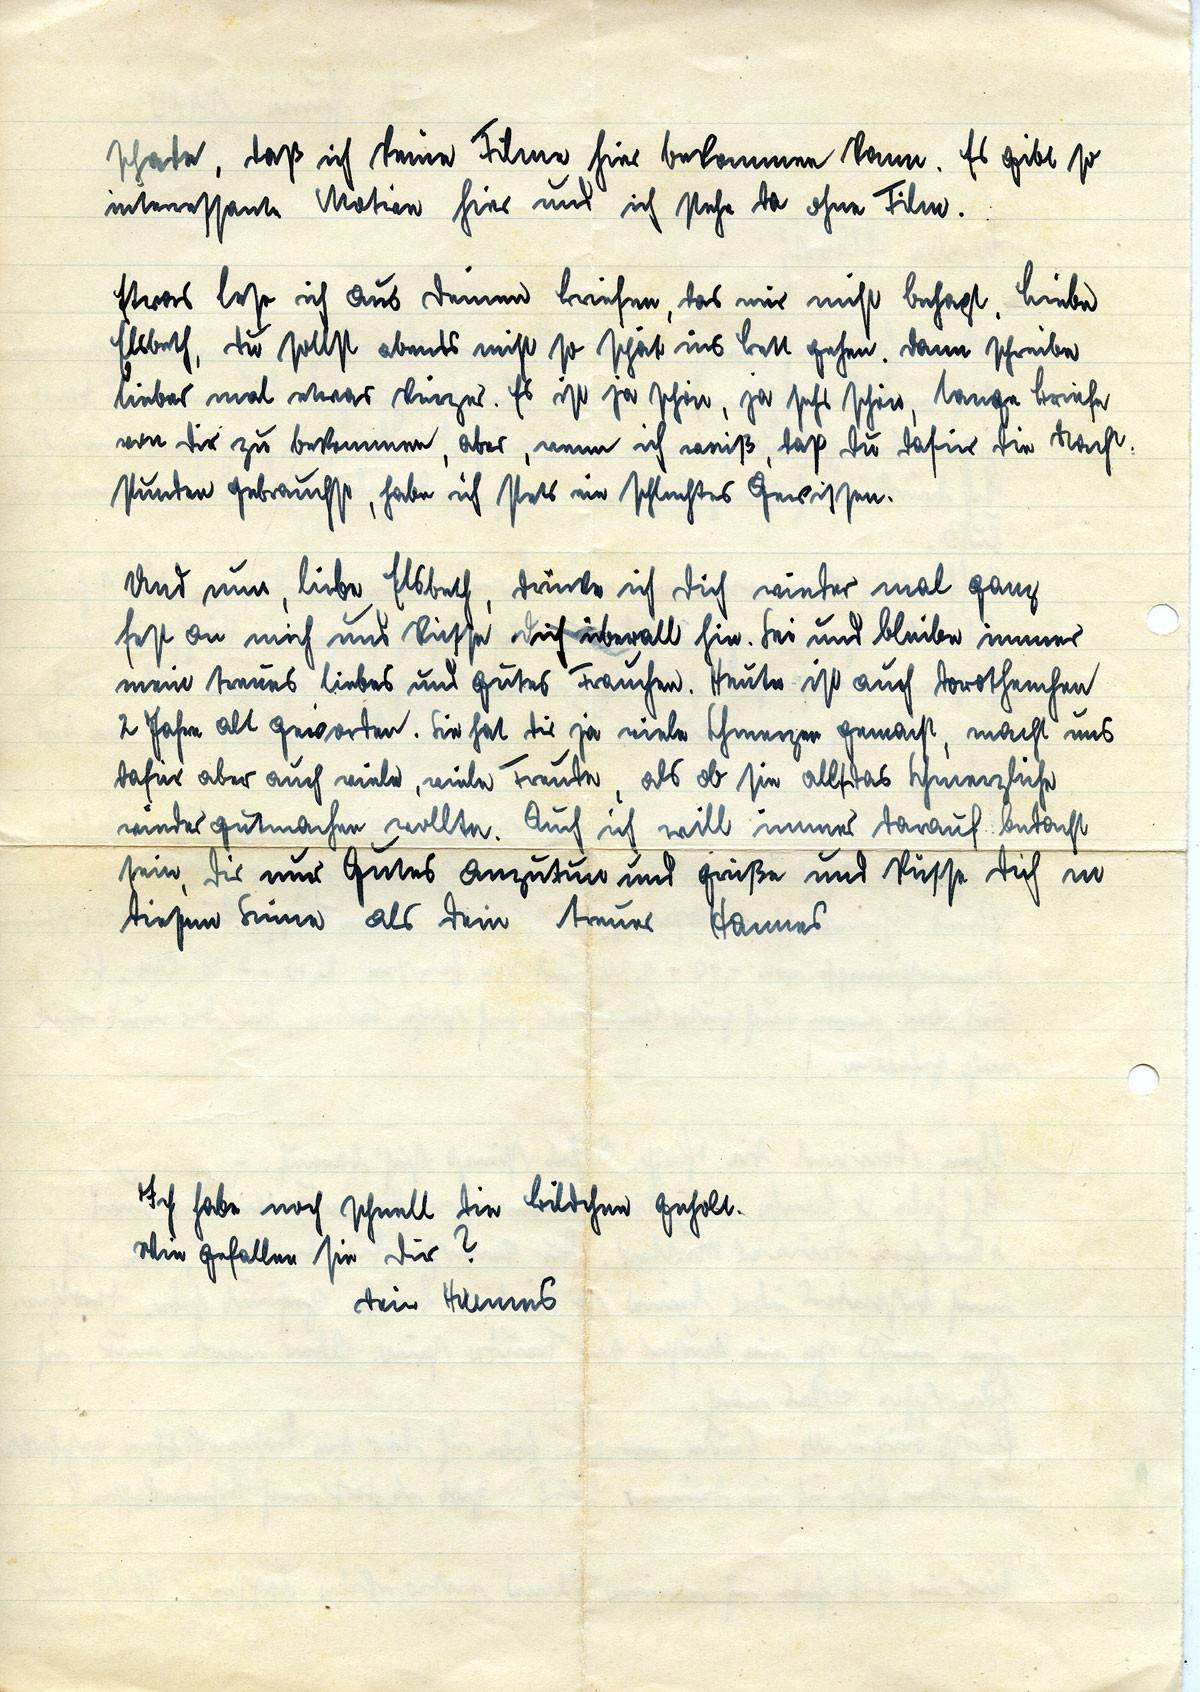 schade, daß ich keine Filme hier bekommen kann. Es gibt so
interessante Motive hier und ich stehe da ohne Film.
Etwas lese ich aus Deinen Briefen, das mir nicht behagt. Liebe
Elsbeth, du sollst abends nicht so spät ins Bett gehen. Dann schreibe
lieber mal etwas kürzer. Es ist ja schön, ja sehr schön, lange Briefe
von dir zu bekommen, aber, wenn ich weiß, daß du dafür die Nacht-
stunden gebrauchst, habe ich stets ein schlechtes Gewissen.
Und nun, liebe Elsbeth, drücke ich dich wieder mal ganz
fest an mich und küsse dich überall hin. Sei und bleibe immer
mein treues liebes und gutes Frauchen. Heute ist auch Dorotheechen
2 Jahre alt geworden. Sie hat dir ja viele Schmerzen gemacht, macht uns
dafür aber auch viele, viele Freude, als ob sie all das Schmerzliche
wieder gutmachen wollte. Auch ich will immer darauf bedacht
sein, dir nur Gutes anzutun und grüße und küsse dich in
diesem Sinne als dein treuer Hannes
Ich habe noch schnell die Bildchen geholt.
Wie gefallen sie dir?
dein Hannes